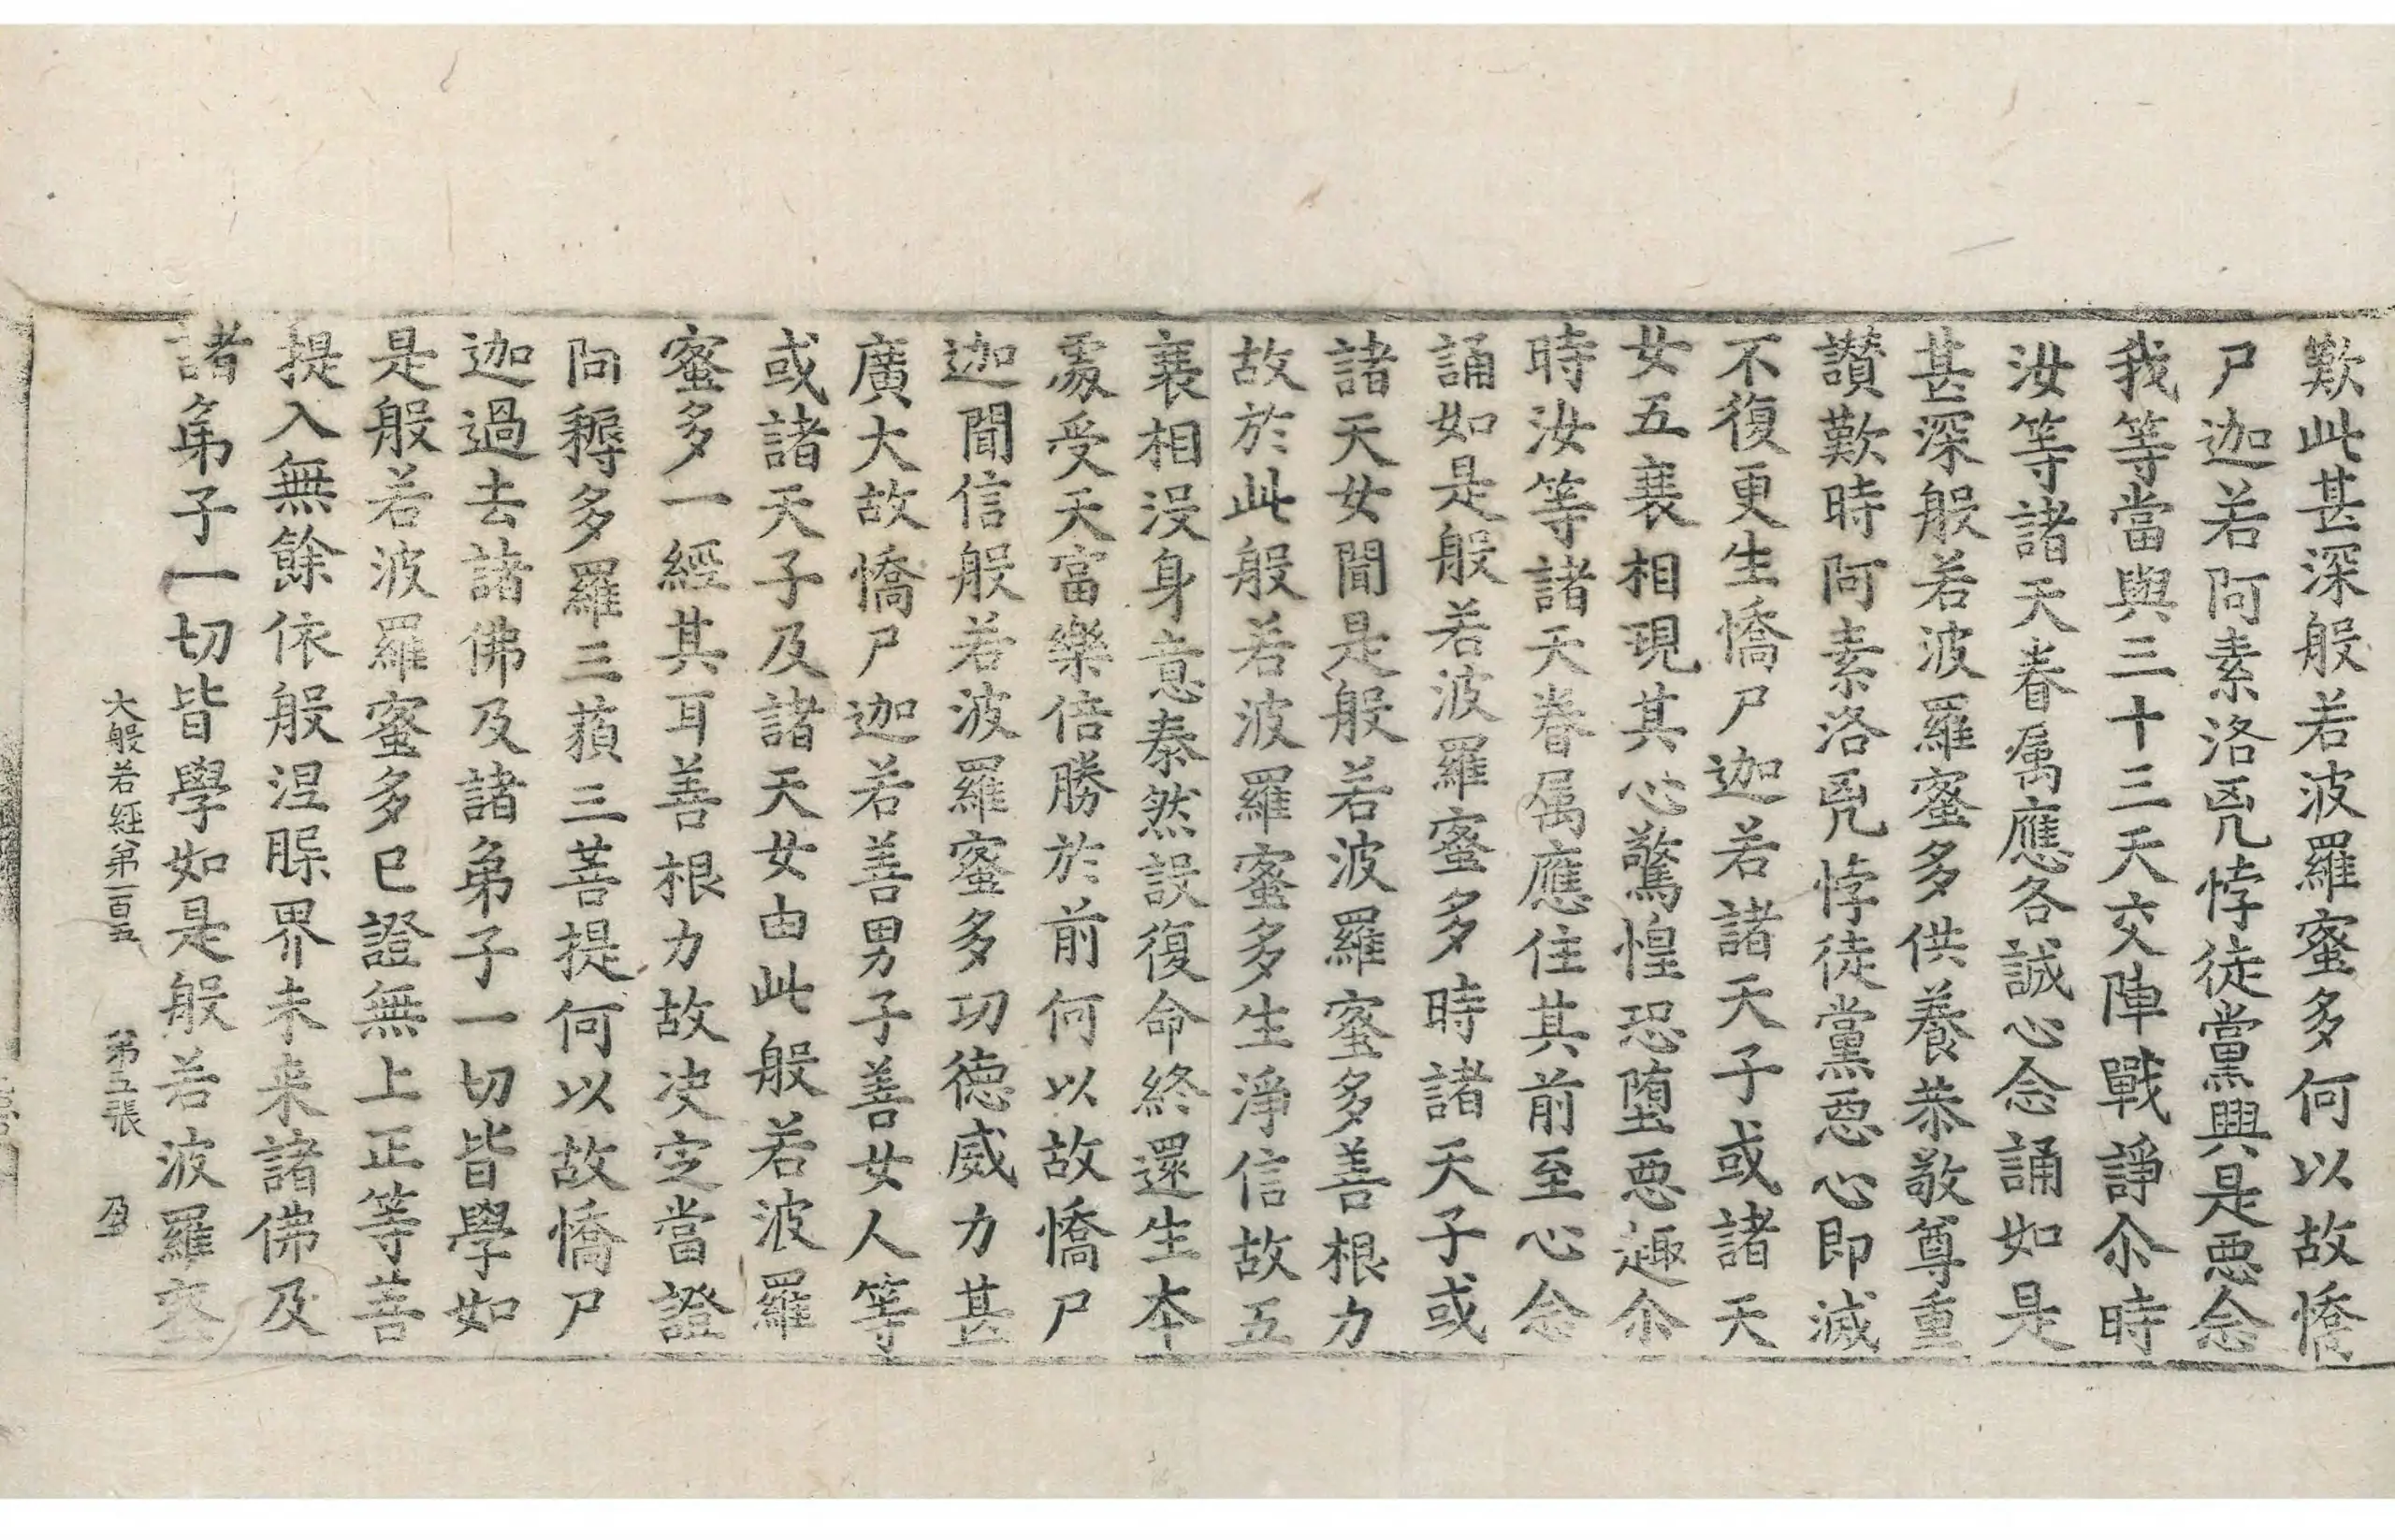 歎此甚深般若波羅蜜多何以故憍
尸迦若阿素洛兇悖徒黨興是惡念
我等當與三十三天交陣戰諍尒時
汝等諸天眷属應各誠心念誦如是
甚深般若波羅蜜多供養恭敬尊重
讃歎時阿素洛兇悖徒黨惡心即滅
不復更生憍尸迦若諸天子或諸天
女五衰相現其心驚惶恐墮惡趣尒
時汝等諸天眷属應住其前至心念
誦如是般若波羅蜜多時諸天子或
諸天女聞是般若波羅蜜多善根力
故於此般若波羅蜜多生淨信故五
衰相没身意泰然設復命終還生本
處受天富樂倍勝於前何以故憍尸
迦聞信般若波羅蜜多功德威力甚
廣大故憍尸迦若善男子善女人等
或諸天子及諸天女由此般若波羅
蜜多一經其耳善根力故决定當證
阿耨多羅三藐三菩提何以故憍尸
迦過去諸佛及諸弟子一切皆學如
是般若波羅蜜多已證無上正等菩
提入無餘依般涅槃界未来諸佛及
諸弟子一切皆學如是般若波羅蜜
大般若經第一百五 第五張 盈